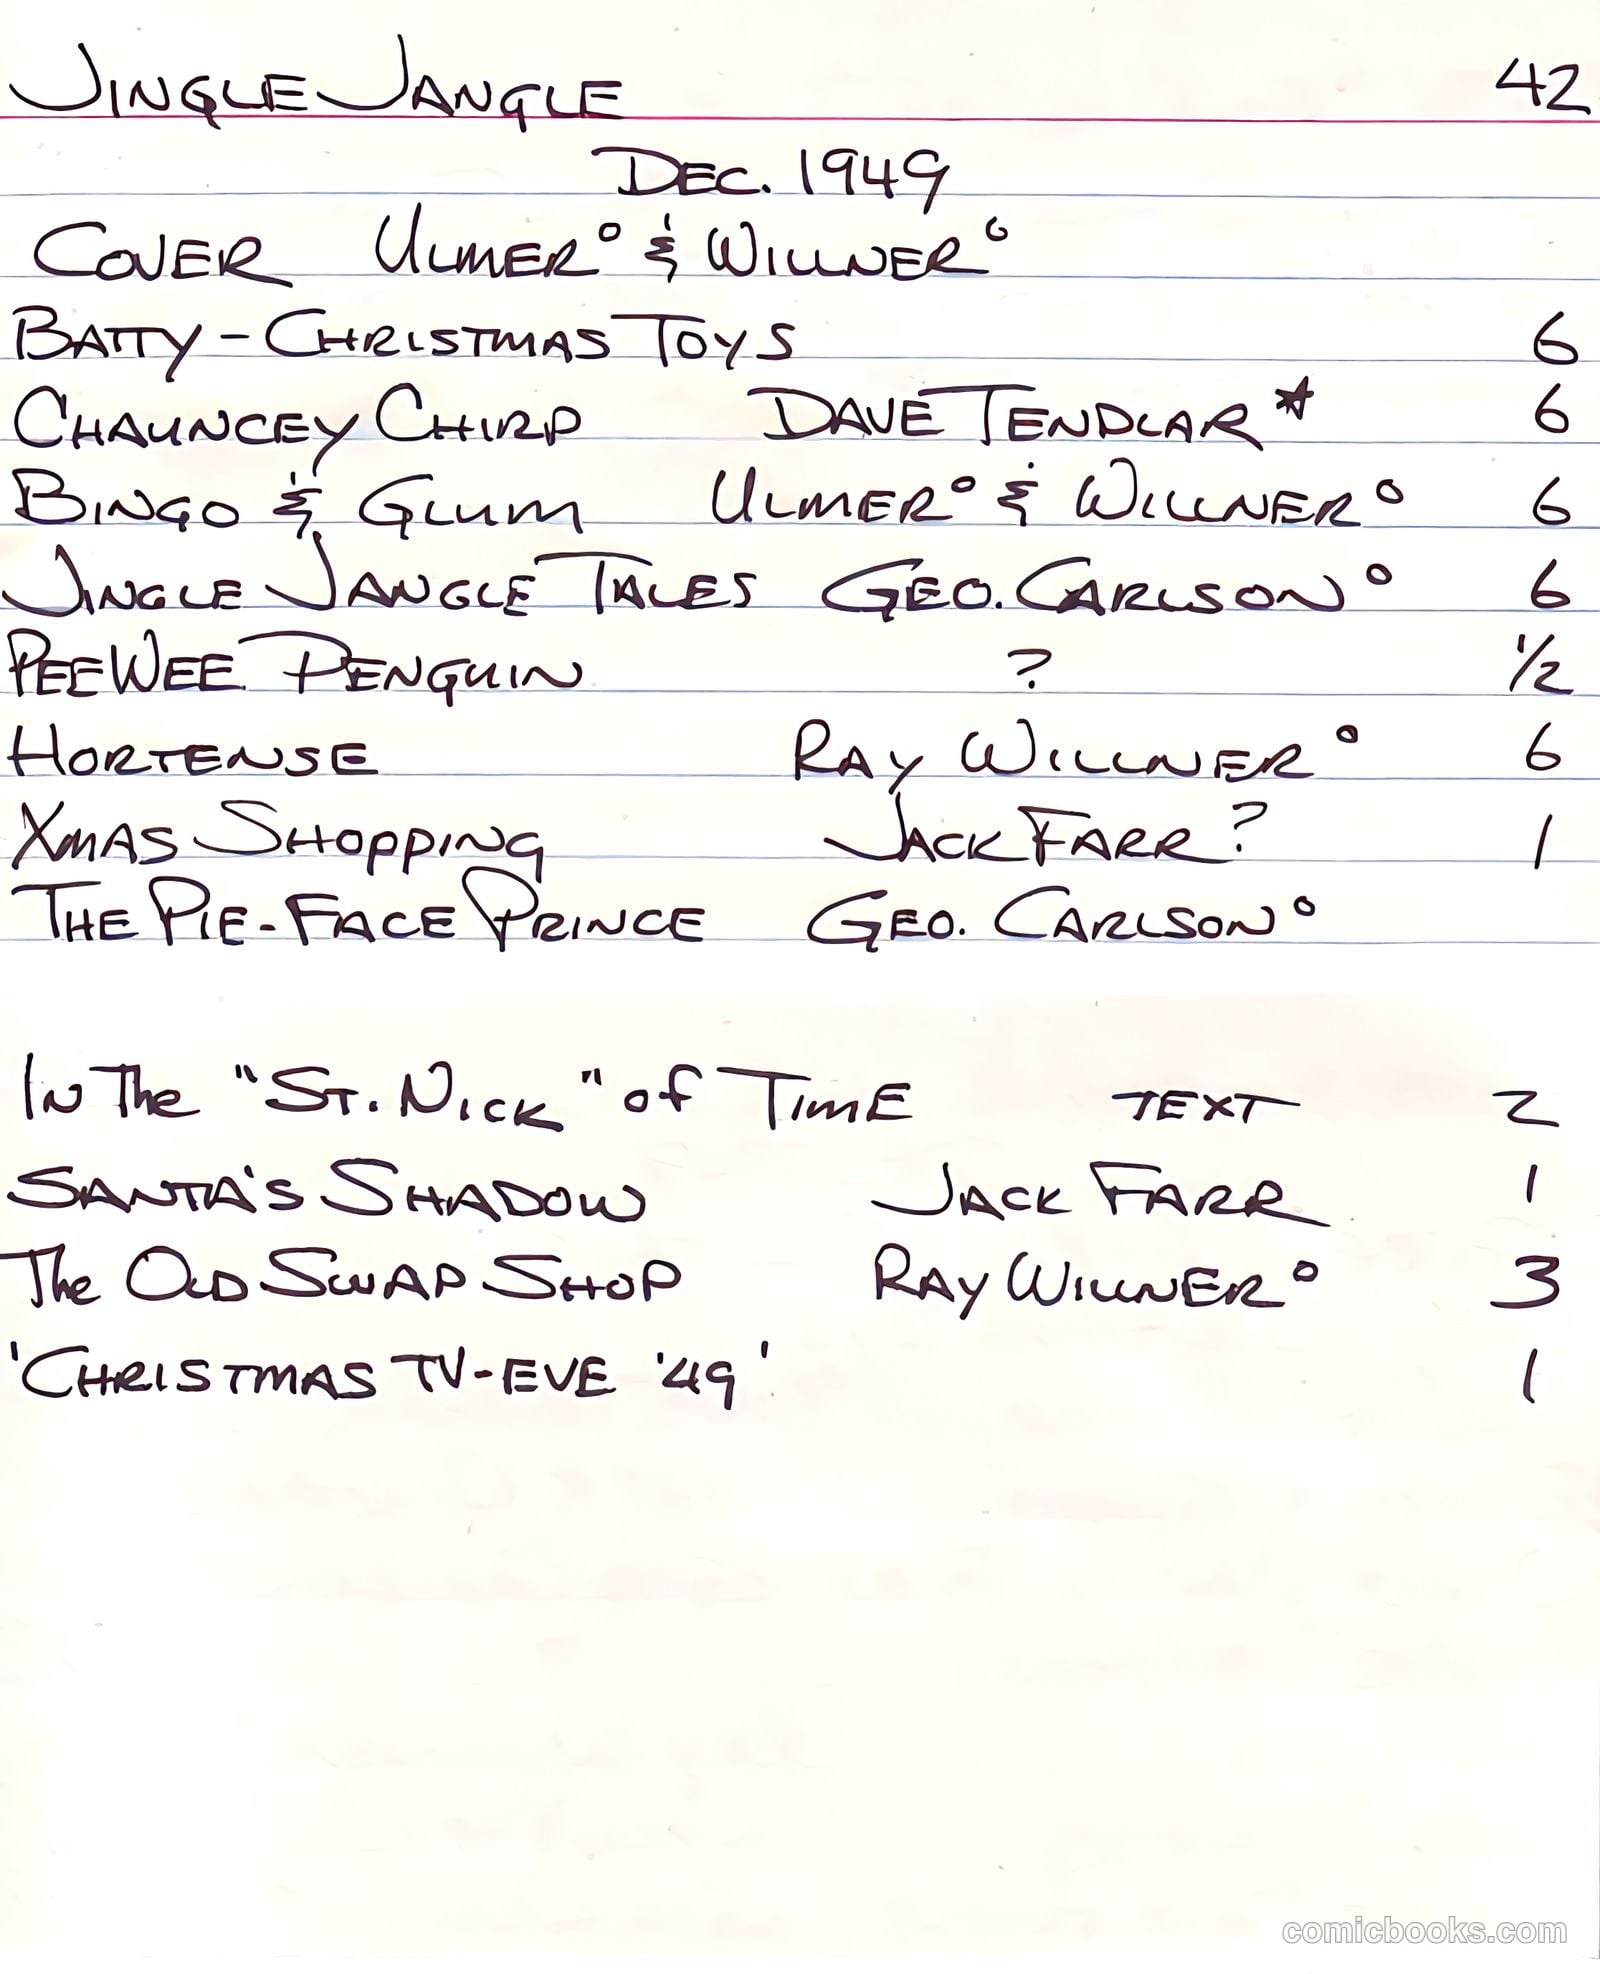 JINGLE JANGLE 42
DEC. 1949
COVER ULMER° & WILLNER°
BATTY - CHRISTMAS TOYS 6
CHAUNCEY CHIRP DAVE TENDLAR* 6
BINGO & GLUM ULMER° & WILLNER° 6
JINGLE JANGLE TALES GEO. CARLSON° 6
PEEWEE PENGUIN ? 1/2
HORTENSE RAY WILLNER° 6
XMAS SHOPPING JACK FARR? 1
THE PIE-FACE PRINCE GEO. CARLSON°
IN THE "ST. NICK" OF TIME TEXT 2
SANTA'S SHADOW JACK FARR 1
The OLD SWAP SHOP RAY WILLNER° 3
'CHRISTMAS TV-EVE '49' 1
comicbooks.com